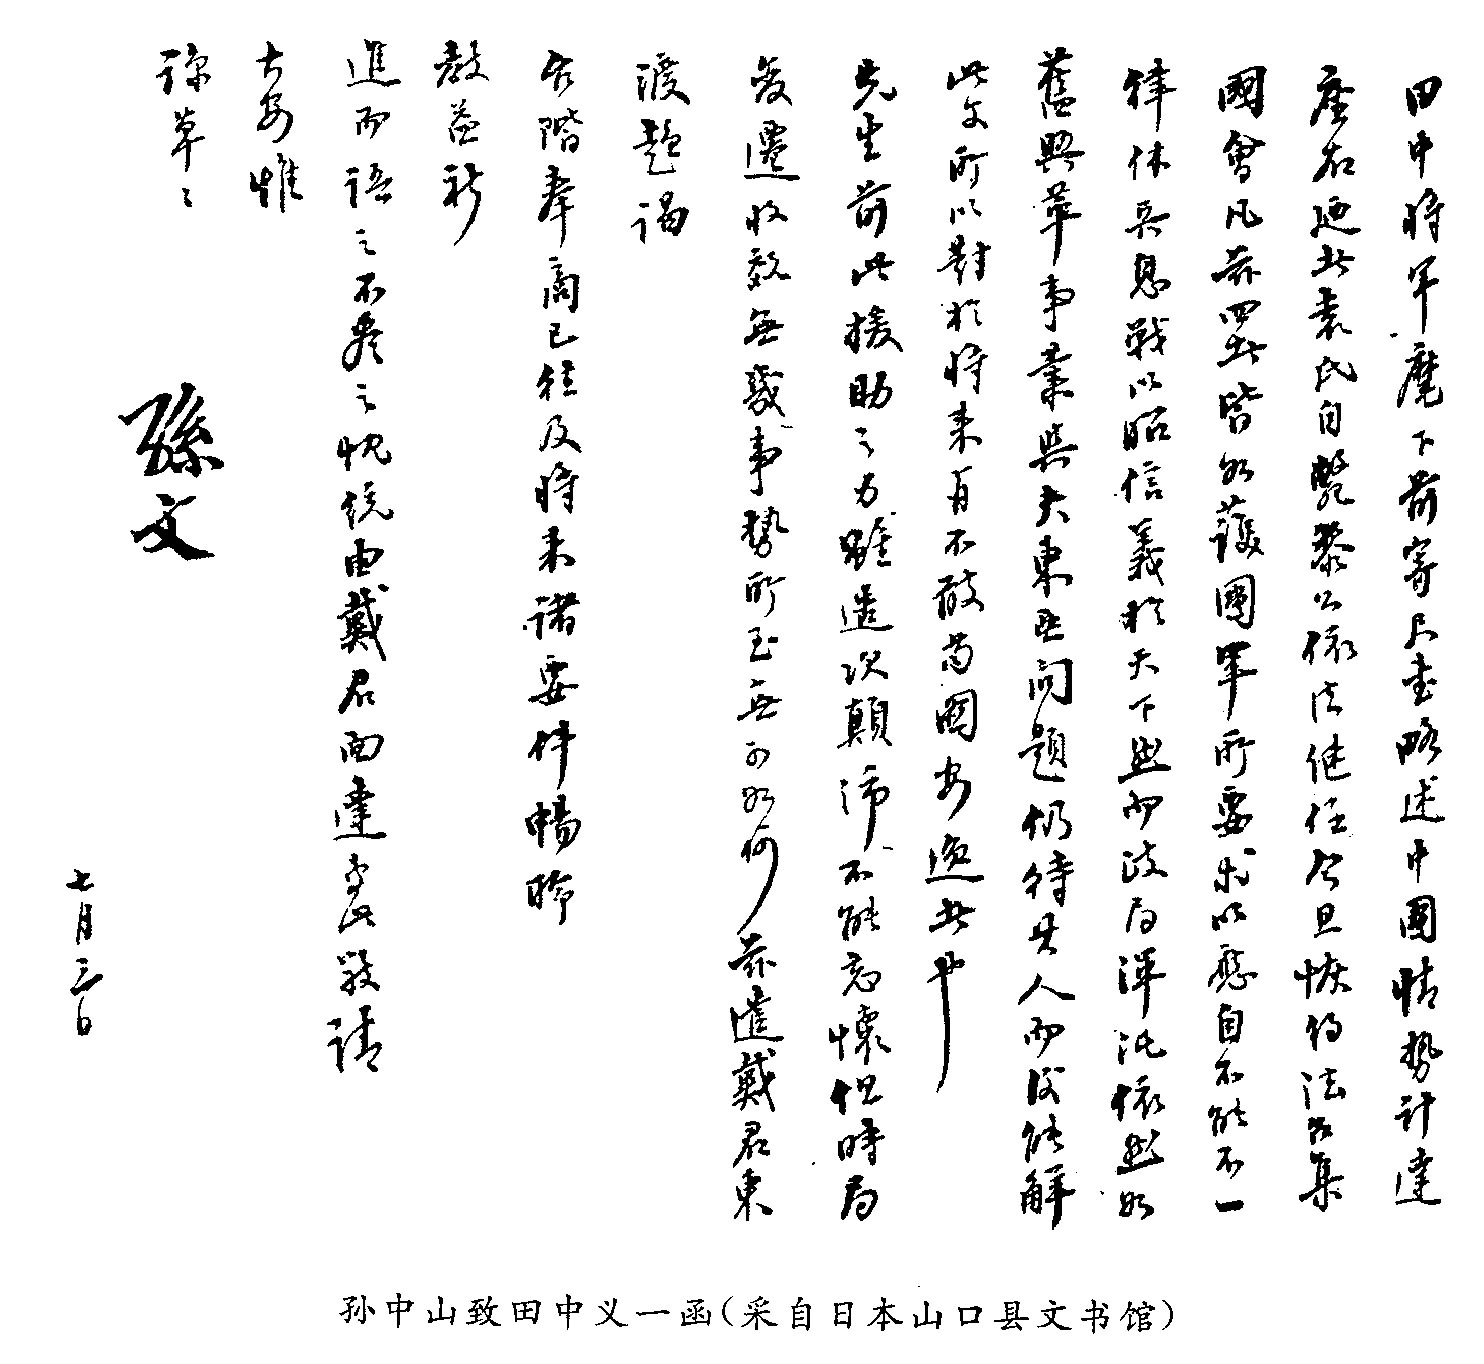 田中將軍麾下前寄尺書略述中國情勢計達
座右迺者袁氏自斃黎公依法繼任今且恢復約法召集
國會凡茲四者皆如護國軍所要求以應自不能不一
律休兵息戰以昭信義於天下然而政局渾沌依然如
舊興華事業與大東亞問題仍待其人而後能解
此文所以對於將來有不敢苟圖安逸者也
先生前此援助之力雖造次顛沛不能忘懷但時局
變遷收效無幾事勢所至無可如何茲遣戴君東
渡趨謁
台階奉商已往及將來諸要件暢聆
教益祈
進而語之不盡之忱統由戴君面達專此敬請
大安惟
諒草々
孫文
七月三日
孙中山致田中义一函(采自日本山口县文书馆)